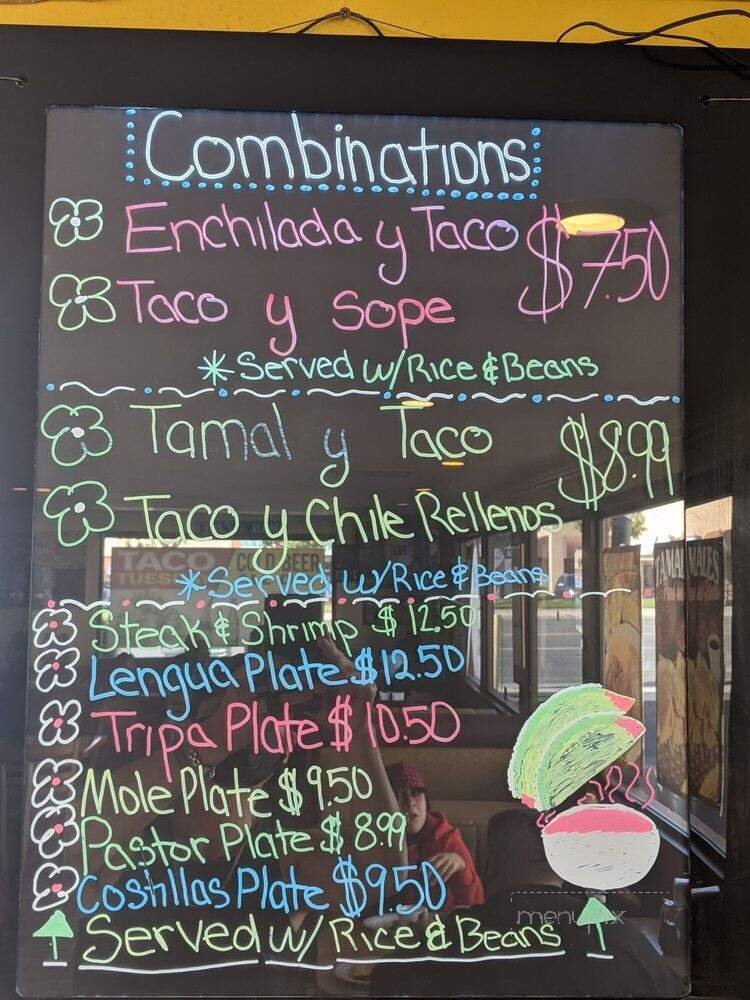 Combinations
Enchilada y Taco $7.50
Taco y Sope
*Served w/Rice & Beans
Tamal y Taco $8.99
Taco y Chile Rellenos
*Served w/Rice & Beans
Steak & Shrimp $12.50
Lengua Plate $12.50
Tripa Plate $10.50
Mole Plate $9.50
Pastor Plate $8.99
Costillas Plate $9.50
Served w/ Rice & Beans
TACO
COLD BEER